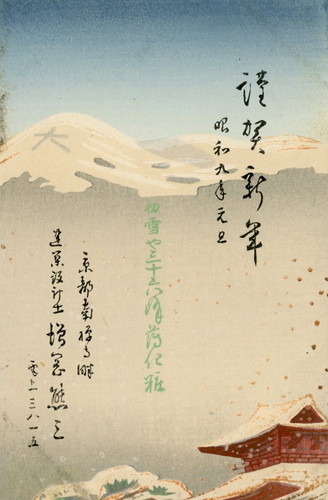 謹賀新年
昭和九年元旦
初雪や三十六峰薄化粧
京都南禅寺畔
造景設計士 増冨熊三
電上三八一五
大